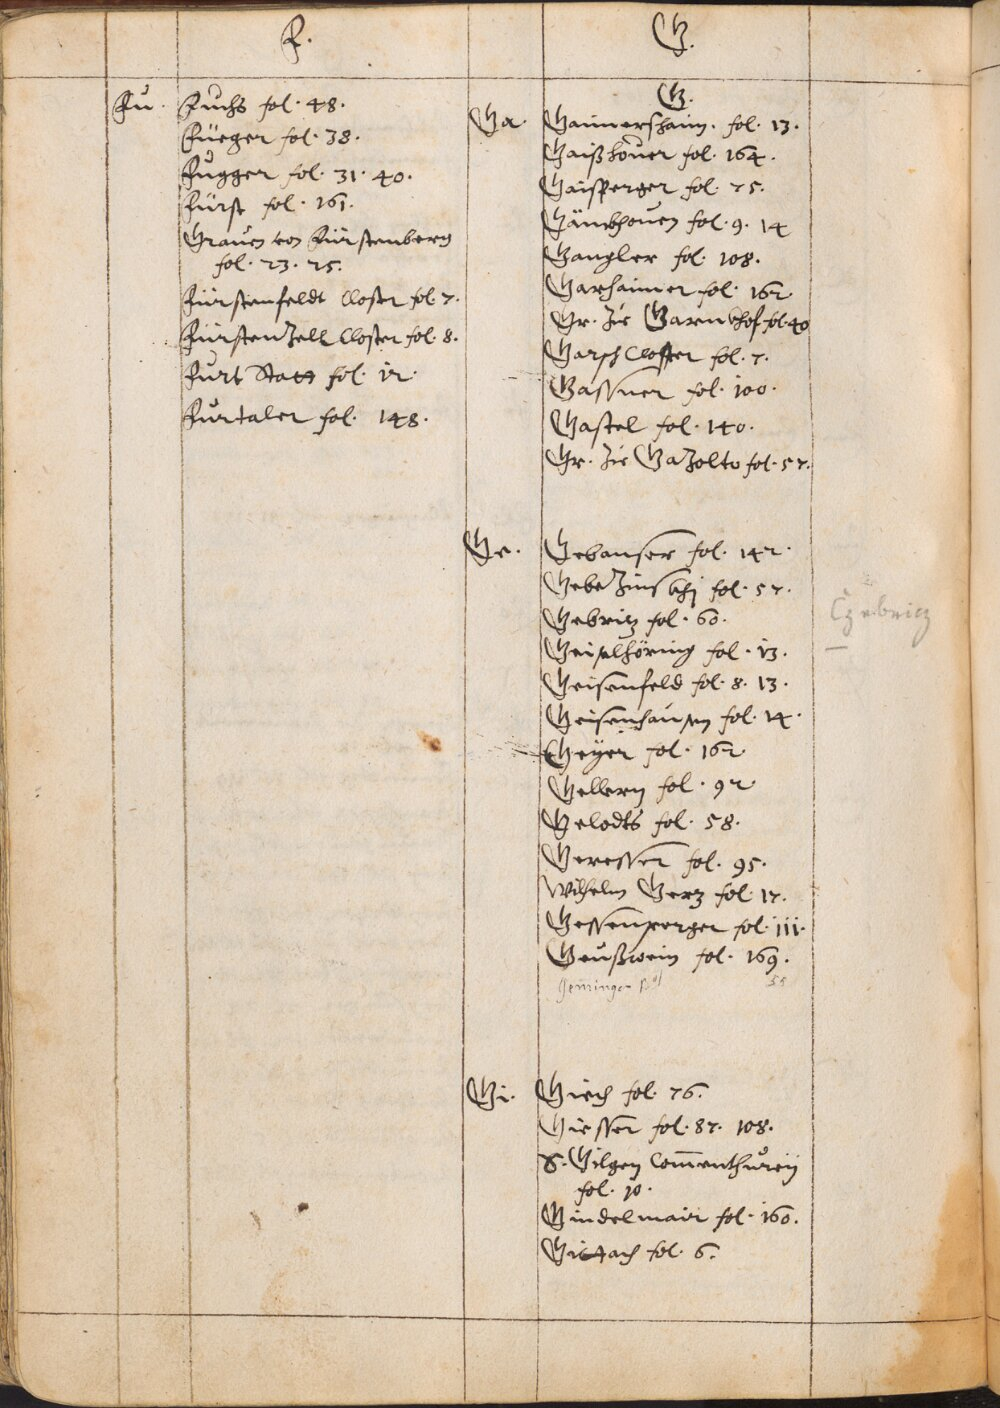 F.
Fu.
Fuchs fol. 48.
Füeger fol. 38.
Fugger fol. 31. 40.
Fürst fol. 161.
Graven von Fürstenberg
fol. 23. 25.
Fürstenfeldt Closter fol. 7.
Fürstenzell Closter fol. 8.
Furt Statt fol. 12.
Furtaler fol. 148.
G.
G.
Ga.
Gaimershaim. fol. 13.
Gaißhover fol. 164.
Gaisperger fol. 75.
Gänkhoven fol. 9. 14
Gangler fol. 108.
Garhaimer fol. 162
Gr. zu fol. 40
Garsch Closter fol. 7.
Gassner fol. 100.
Gastel fol. 140.
Gr. zu Gazolto fol. 57.
Ge.
Gebanser fol. 142.
fol. 57.
Gebritz fol. 60.
Czebricz
Geiselhöring fol. 13.
Geisenfeld fol. 8. 13.
Geisenhausen fol. 14.
Geÿer fol. 162
Gellern fol. 92
Gelodts fol. 58.
Geresser fol. 95.
Wilhelm Gertz fol. 17.
Gessenperger fol. 111.
Geußwein fol. 169.
Gemingen 55
Gi.
Giech fol. 76.
Giesser fol. 87. 108.
S. Gilgen Commenthureÿ
fol. 10.
Gindelmair fol. 160.
fol. 6.